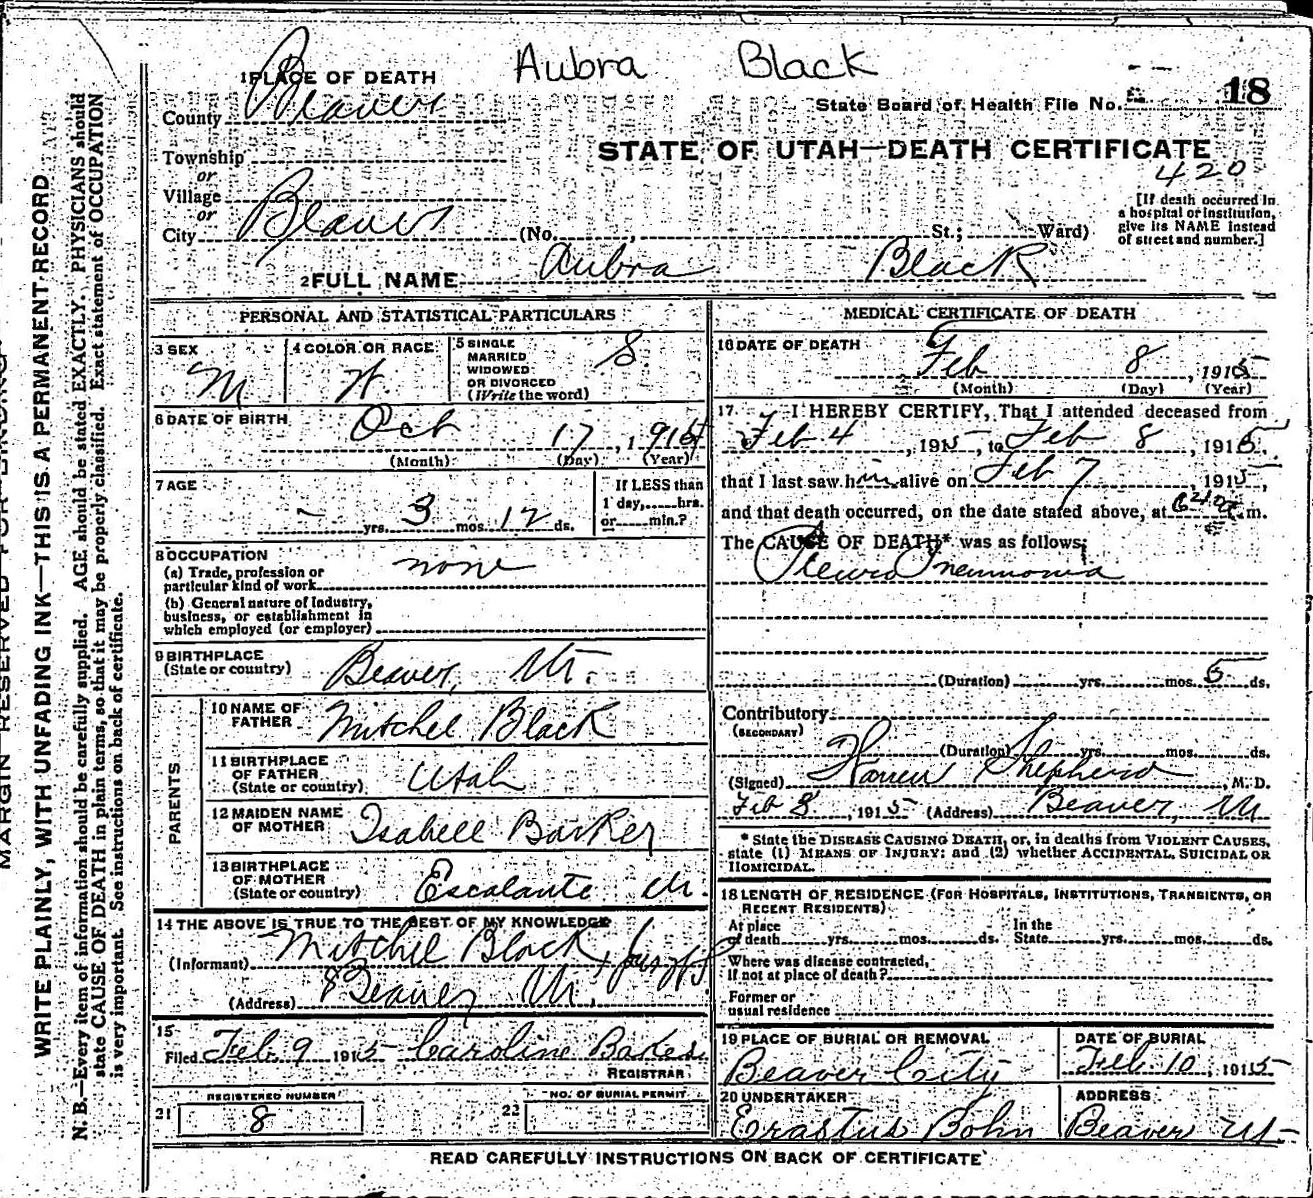 Aubra Black
1 PLACE OF DEATH
County Beaver
State Board of Health File No. 18
Township
STATE OF UTAH—DEATH CERTIFICATE
or
420
Village
or
City Beaver (No. , St.; Ward)
[If death occurred in
a hospital or institution,
give its NAME instead
of street and number.]
2 FULL NAME Aubra Black
PERSONAL AND STATISTICAL PARTICULARS
3 SEX M
4 COLOR OR RACE W.
5 SINGLE
MARRIED
WIDOWED
OR DIVORCED
(Write the word) S
6 DATE OF BIRTH Oct 17, 1914
(Month) (Day) (Year)
7 AGE - yrs. 3 mos. 12 ds.
If LESS than
1 day, hrs.
or min.?
8 OCCUPATION
(a) Trade, profession or
particular kind of work none
(b) General nature of Industry,
business, or establishment in
which employed (or employer)
9 BIRTHPLACE
(State or country) Beaver, Ut.
PARENTS
10 NAME OF
FATHER Mitchel Black
11 BIRTHPLACE
OF FATHER
(State or country) Utah
12 MAIDEN NAME
OF MOTHER Isabell Barker
13 BIRTHPLACE
OF MOTHER
(State or country) Escalante Ut.
14 THE ABOVE IS TRUE TO THE BEST OF MY KNOWLEDGE
(Informant) Mitchel Black
(Address) Beaver Ut.
15
Filed Feb. 9 1915 Caroline Baker
REGISTRAR
REGISTERED NUMBER
21 8
NO. OF BURIAL PERMIT
22
MEDICAL CERTIFICATE OF DEATH
16 DATE OF DEATH
Feb 8, 1915
(Month) (Day) (Year)
17. I HEREBY CERTIFY, That I attended deceased from
Feb 4, 1915, to Feb 8, 1915
that I last saw him alive on Feb 7, 1915,
and that death occurred, on the date stated above, at 640 a.m.
The CAUSE OF DEATH* was as follows;
Pleuro Pneumonia
(Duration) yrs. mos. 5 ds.
Contributory
(SECONDARY)
(Duration) yrs. mos. ds.
(Signed) Warren Shepherd, M. D.
Feb 8, 1915 (Address) Beaver, Ut
* State the DISEASE CAUSING DEATH, or, in deaths from VIOLENT CAUSES,
state (1) MEANS OF INJURY; and (2) whether ACCIDENTAL, SUICIDAL OR
HOMICIDAL.
18 LENGTH OF RESIDENCE (FOR HOSPITALS, INSTITUTIONS, TRANSIENTS, OR
RECENT RESIDENTS)
At place
of death yrs. mos. ds. In the
State yrs. mos. ds.
Where was disease contracted,
if not at place of death?
Former or
usual residence
19 PLACE OF BURIAL OR REMOVAL
Beaver City
DATE OF BURIAL
Feb. 10, 1915
20 UNDERTAKER
Erastus Bohn
ADDRESS
Beaver Ut
READ CAREFULLY INSTRUCTIONS ON BACK OF CERTIFICATE
WRITE PLAINLY, WITH UNFADING INK—THIS IS A PERMANENT RECORD
N. B.—Every item of information should be carefully supplied. AGE should be stated EXACTLY. PHYSICIANS should
state CAUSE OF DEATH in plain terms, so that it may be properly classified. Exact statement of OCCUPATION
is very important. See instructions on back of certificate.